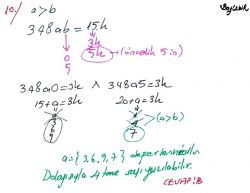 10.) a>b
348ab = 15k
3k
5k (öncelik 5 in)
0
5
348a0=3k ∧ 348a5=3k
15+a=3k 20+a=3k
3 1
6 4
9 7 (a>b)
a={3,6,9,7} değerleri
4 tane sayı yazılabilir.
CEVAP:B